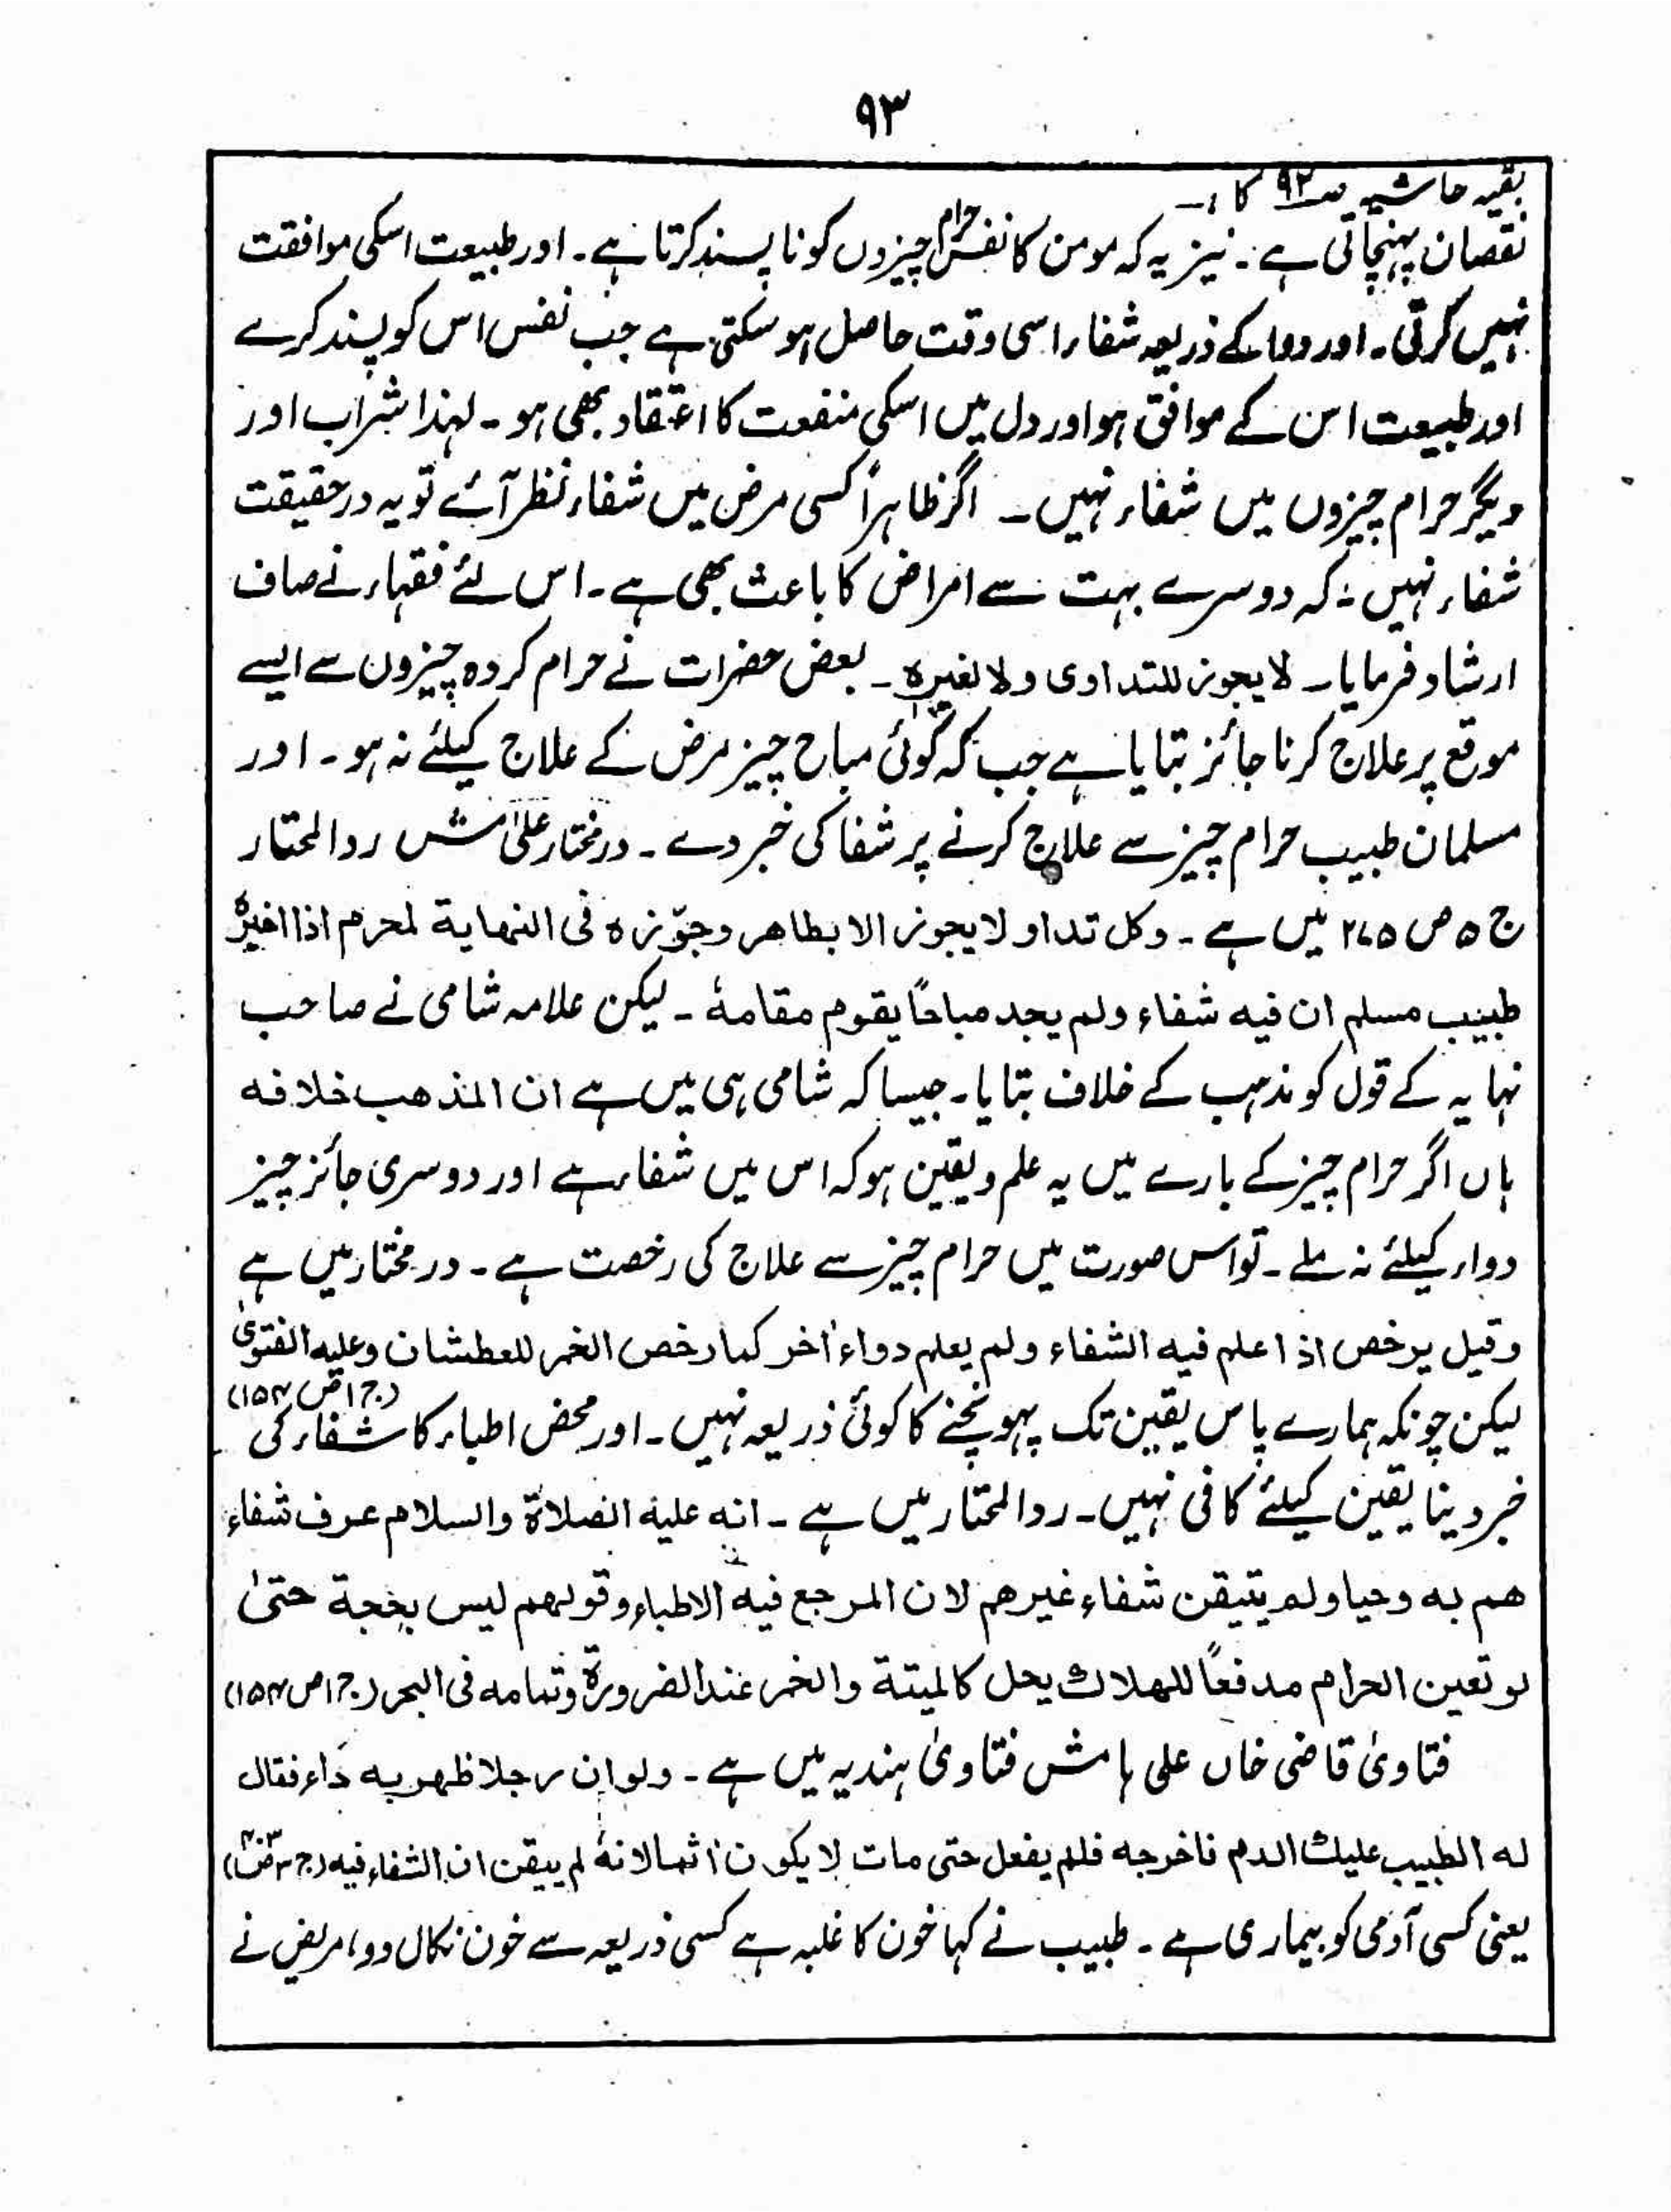 ۹۳
بقیہ حاشیہ صـ ۹۲ کا :ـ
نقصان پہنچاتی ہے :۔ نیز یہ کہ مومن کا نفس حرام چیزوں کو نا پسند کرتا ہے۔ اور طبیعت اسکی موافقت
نہیں کرتی۔ اور دوا کے ذریعہ شفاء اسی وقت حاصل ہو سکتی ہے جب نفس اس کو پسند کرے
اور طبیعت اس کے موافق ہو اور دل میں اسکی منفعت کا اعتقاد بھی ہو۔ لہٰذا شراب اور
دیگر حرام چیزوں میں شفاء نہیں ۔ اگر ظاہراً کسی مرض میں شفاء نظر آئے تو یہ در حقیقت
شفاء نہیں : کہ دوسرے بہت سے امراض کا باعث بھی ہے۔ اس لئے فقہاء نے صاف
ارشاد فرمایا۔ لا یجوز للتداوی ولا لغیرہ ۔ بعض حضرات نے حرام کردہ چیزوں سے ایسے
موقع پر علاج کرنا جائز بتایا ہے جب کہ کوئی مباح چیز مرض کے علاج کیلئے نہ ہو۔ اور
مسلمان طبیب حرام چیز سے علاج کرنے پر شفا کی خبر دے ۔ درمختار علیٰ ش ردالمحتار
ج ۵ ص ۲۷۵ میں ہے ۔ وکل تداو لا یجوز الا بطاھر وجوّزہ فی النھایۃ لمحرم اذا اخبرہٗ
طبیب مسلم ان فیہ شفاء ولم یجد مباحًا یقوم مقامہٗ ۔ لیکن علامہ شامی نے صاحب
نہایہ کے قول کو مذہب کے خلاف بتایا۔ جیسا کہ شامی ہی میں ہے ان المذھب خلافہ
ہاں اگر حرام چیز کے بارے میں یہ علم و یقین ہو کہ اس میں شفاء ہے اور دوسری جائز چیز
دواء کیلئے نہ ملے ۔ تو اس صورت میں حرام چیز سے علاج کی رخصت ہے ۔ در مختار میں ہے
وقیل یرخص اذا علم فیہ الشفاء ولم یعلم دواء اٰخر کما رخص الخمر للعطشان وعلیہ الفتویٰ
(ج ۱ ص ۱۵۴)
لیکن چونکہ ہمارے پاس یقین تک پہونچنے کا کوئی ذریعہ نہیں ۔ اور محض اطباء کا شفاء کی
خبر دینا یقین کیلئے کافی نہیں ۔ ردالمحتار میں ہے ۔ انہ علیہ الصلاۃ والسلام عرف شفاء
ھم بہ وحیا ولم یتیقن شفاء غیرھم لان المرجع فیہ الاطباء وقولھم لیس بحجۃ حتیٰ
لو تعین الحرام مدفعًا للھلاك یحل کالمیتۃ والخمر عند الضرورۃ وتمامہ فی البحر (ج ۱ ص ۱۵۴)
فتاویٰ قاضی خاں علی ہامش فتاویٰ ہندیہ میں ہے ۔ ولو ان رجلا ظھر بہ داء فقال
لہ الطبیب علیك الدم فاخرجہ فلم یفعل حتی مات لا یکون اٰثما لانہٗ لم ییقن ان الشفاء فیہ (ج ۳ ص ۴۰۳)
یعنی کسی آدمی کو بیماری ہے ۔ طبیب نے کہا خون کا غلبہ ہے کسی ذریعہ سے خون نکال دو، مریض نے